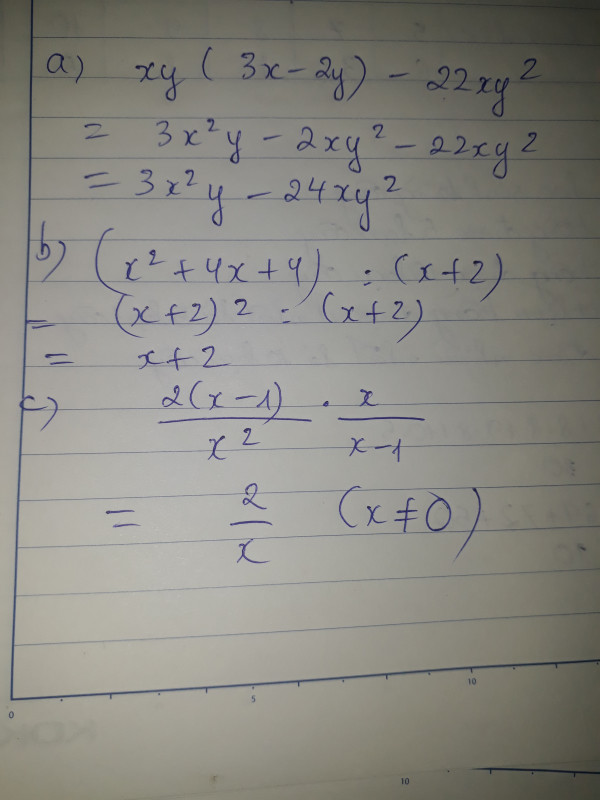 a) xy ( 3x - 2y) - 22xy²
= 3x²y - 2xy² - 22xy²
= 3x²y - 24xy²
b) (x² + 4x + 4) : (x + 2)
= (x + 2)² : (x + 2)
= x + 2
c) 2(x - 1)/x² · x/x - 1
= 2/x (x ≠ 0)
0 5 10
10